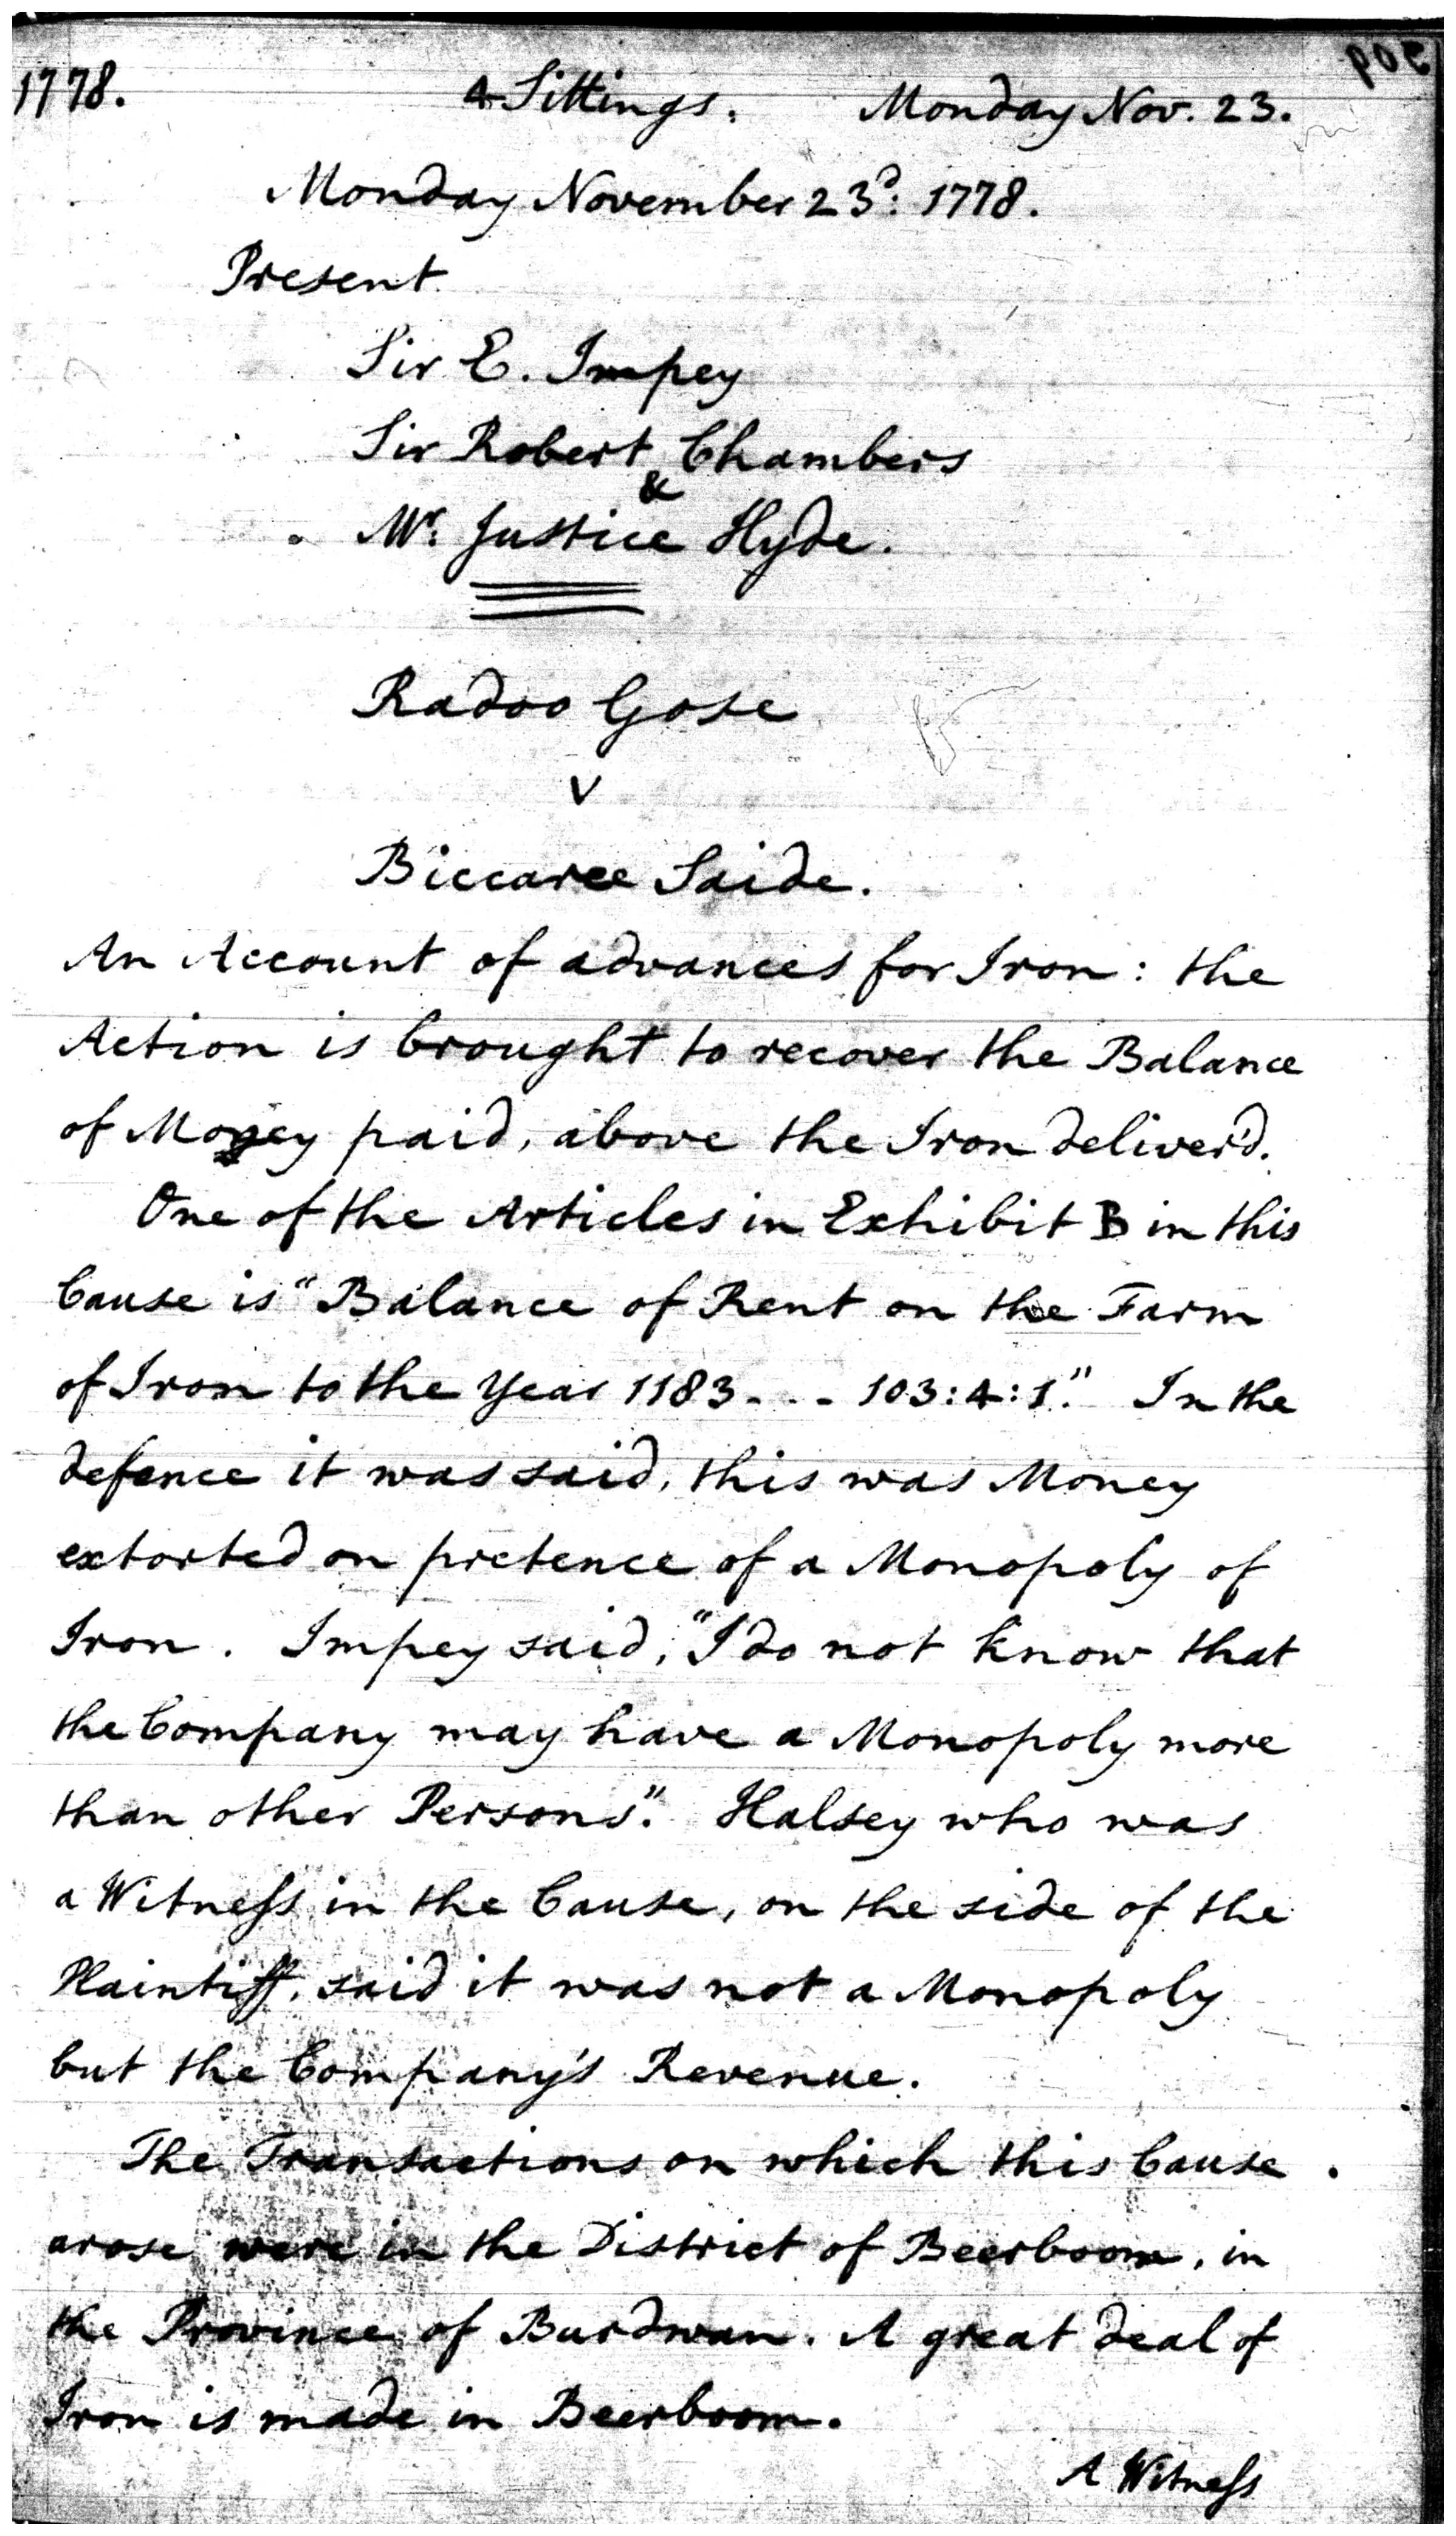 1778. 4 Sittings. Monday Nov. 23.
Monday November 23d. 1778.
Present
Sir E. Impey
Sir Robert Chambers
&
Mr. Justice Hyde.
Radoo Gose
v
Biccaree Saide.
An Account of advances for Iron: the
Action is brought to recover the Balance
of Money paid, above the Iron deliver'd.
One of the Articles in Exhibit B in this
Cause is "Balance of Rent on the Farm
of Iron to the Year 1183 - - - 103:4:1." In the
defence it was said, this was Money
extorted on pretence of a Monopoly of
Iron. Impey said, "I do not know that
the Company may have a Monopoly more
than other Persons". Halsey who was
a Witneſs in the Cause, on the side of the
Plaintiff, said it was not a Monopoly
but the Company's Revenue.
The Transactions on which this Cause
arose were in the District of Beerboom, in
the Province of Burdwan. A great deal of
Iron is made in Beerboom.
A Witneſs